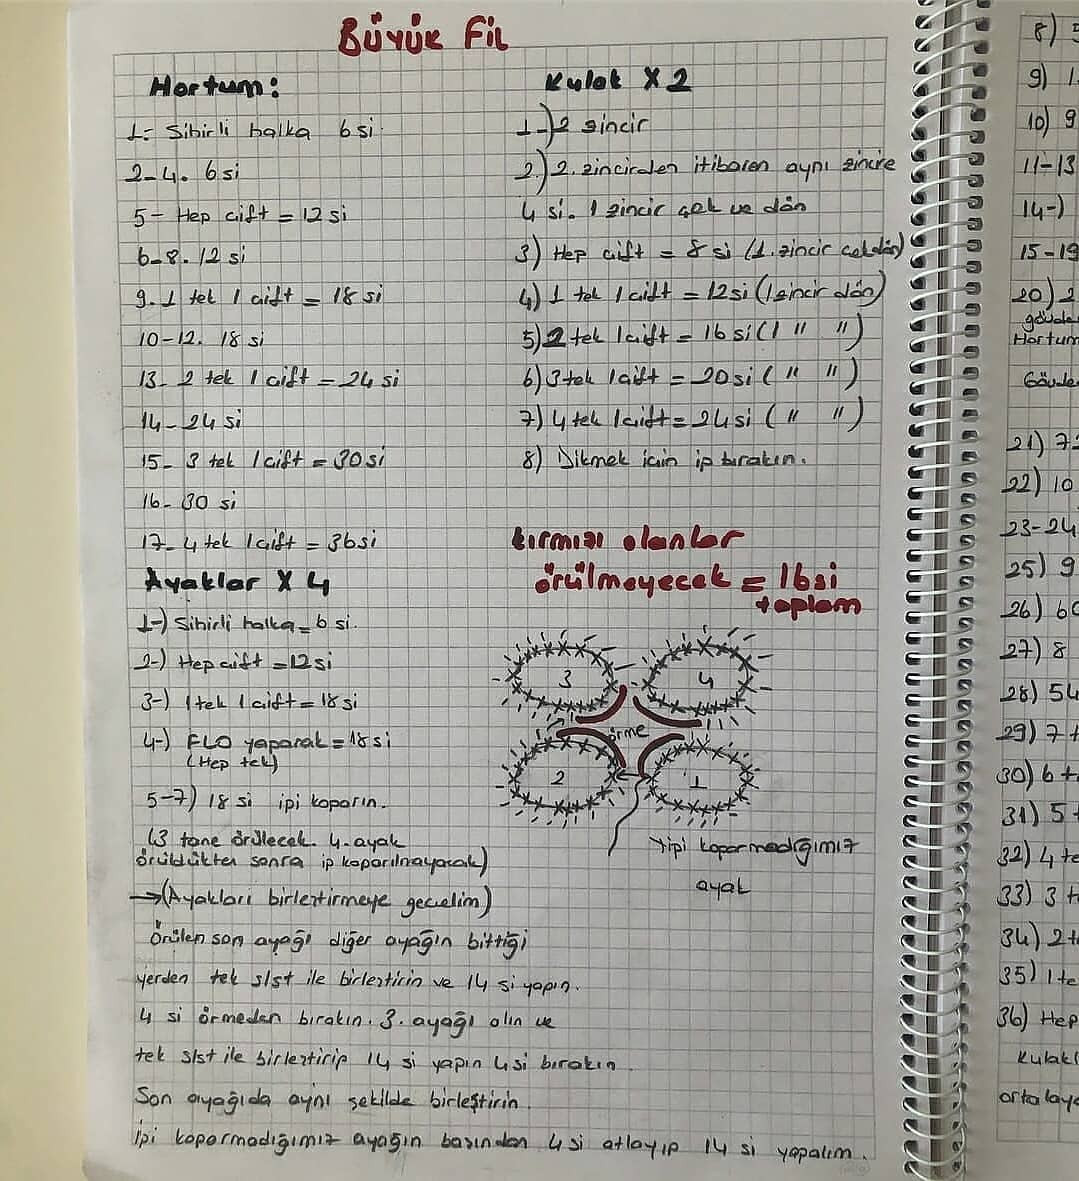 Büyük Fil
Hortum:
1- Sihirli halka 6 si
2-4. 6 si
5- Hep çift = 12 si
6-8. 12 si
9. 1 tek 1 çift = 18 si
10-12. 18 si
13- 2 tek 1 çift = 24 si
14- 24 si
15- 3 tek 1 çift = 30 si
16- 30 si
17- 4 tek 1 çift = 36 si
Ayaklar X 4
1-) Sihirli halka = 6 si.
2-) Hep çift = 12 si
3-) 1 tek 1 çift = 18 si
4-) FLO yaparak = 18 si
(Hep tek)
5-7) 18 si ipi koparın.
(3 tane örülecek. 4. ayak
örüldükten sonra ip koparılmayacak)
→(Ayakları birleştirmeye geçelim)
Örülen son ayağı diğer ayağın bittiği
yerden tek s/st ile birleştirin ve 14 si yapın.
4 si örmeden bırakın. 3. ayağı alın ve
tek s/st ile birleştirip 14 si yapın 4 si bırakın.
Son ayağıda aynı şekilde birleştirin.
İpi koparmadığımız ayağın başından 4 si atlayıp 14 si yapalım.
Kulak X 2
1-) 2 zincir
2.) 2. zincirden itibaren aynı zincire
4 si. 1 zincir çek ve dön
3) Hep çift = 8 si (1. zincir çek dön)
4) 1 tek 1 çift = 12 si (1 zincir dön)
5) 2 tek 1 çift = 16 si (1 " ")
6) 3 tek 1 çift = 20 si ( " ")
7) 4 tek 1 çift = 24 si ( " ")
8) Dikmek için ip bırakın.
kırmızı olanlar
örülmeyecek = 16 si
toplam
3
4
örme
2
1
→ipi koparmadığımız
ayak
8)
9) 1
10) 9
11-13
14-)
15-19
20) 2
gövde
Hortum
Gövde
21) 7
22) 10
23-24
25) 9
26) 60
27) 8
28) 54
29) 7 +
30) 6 t
31) 5 +
32) 4 te
33) 3 t
34) 2 t
35) 1 te
36) Hep
Kulak
ortalay